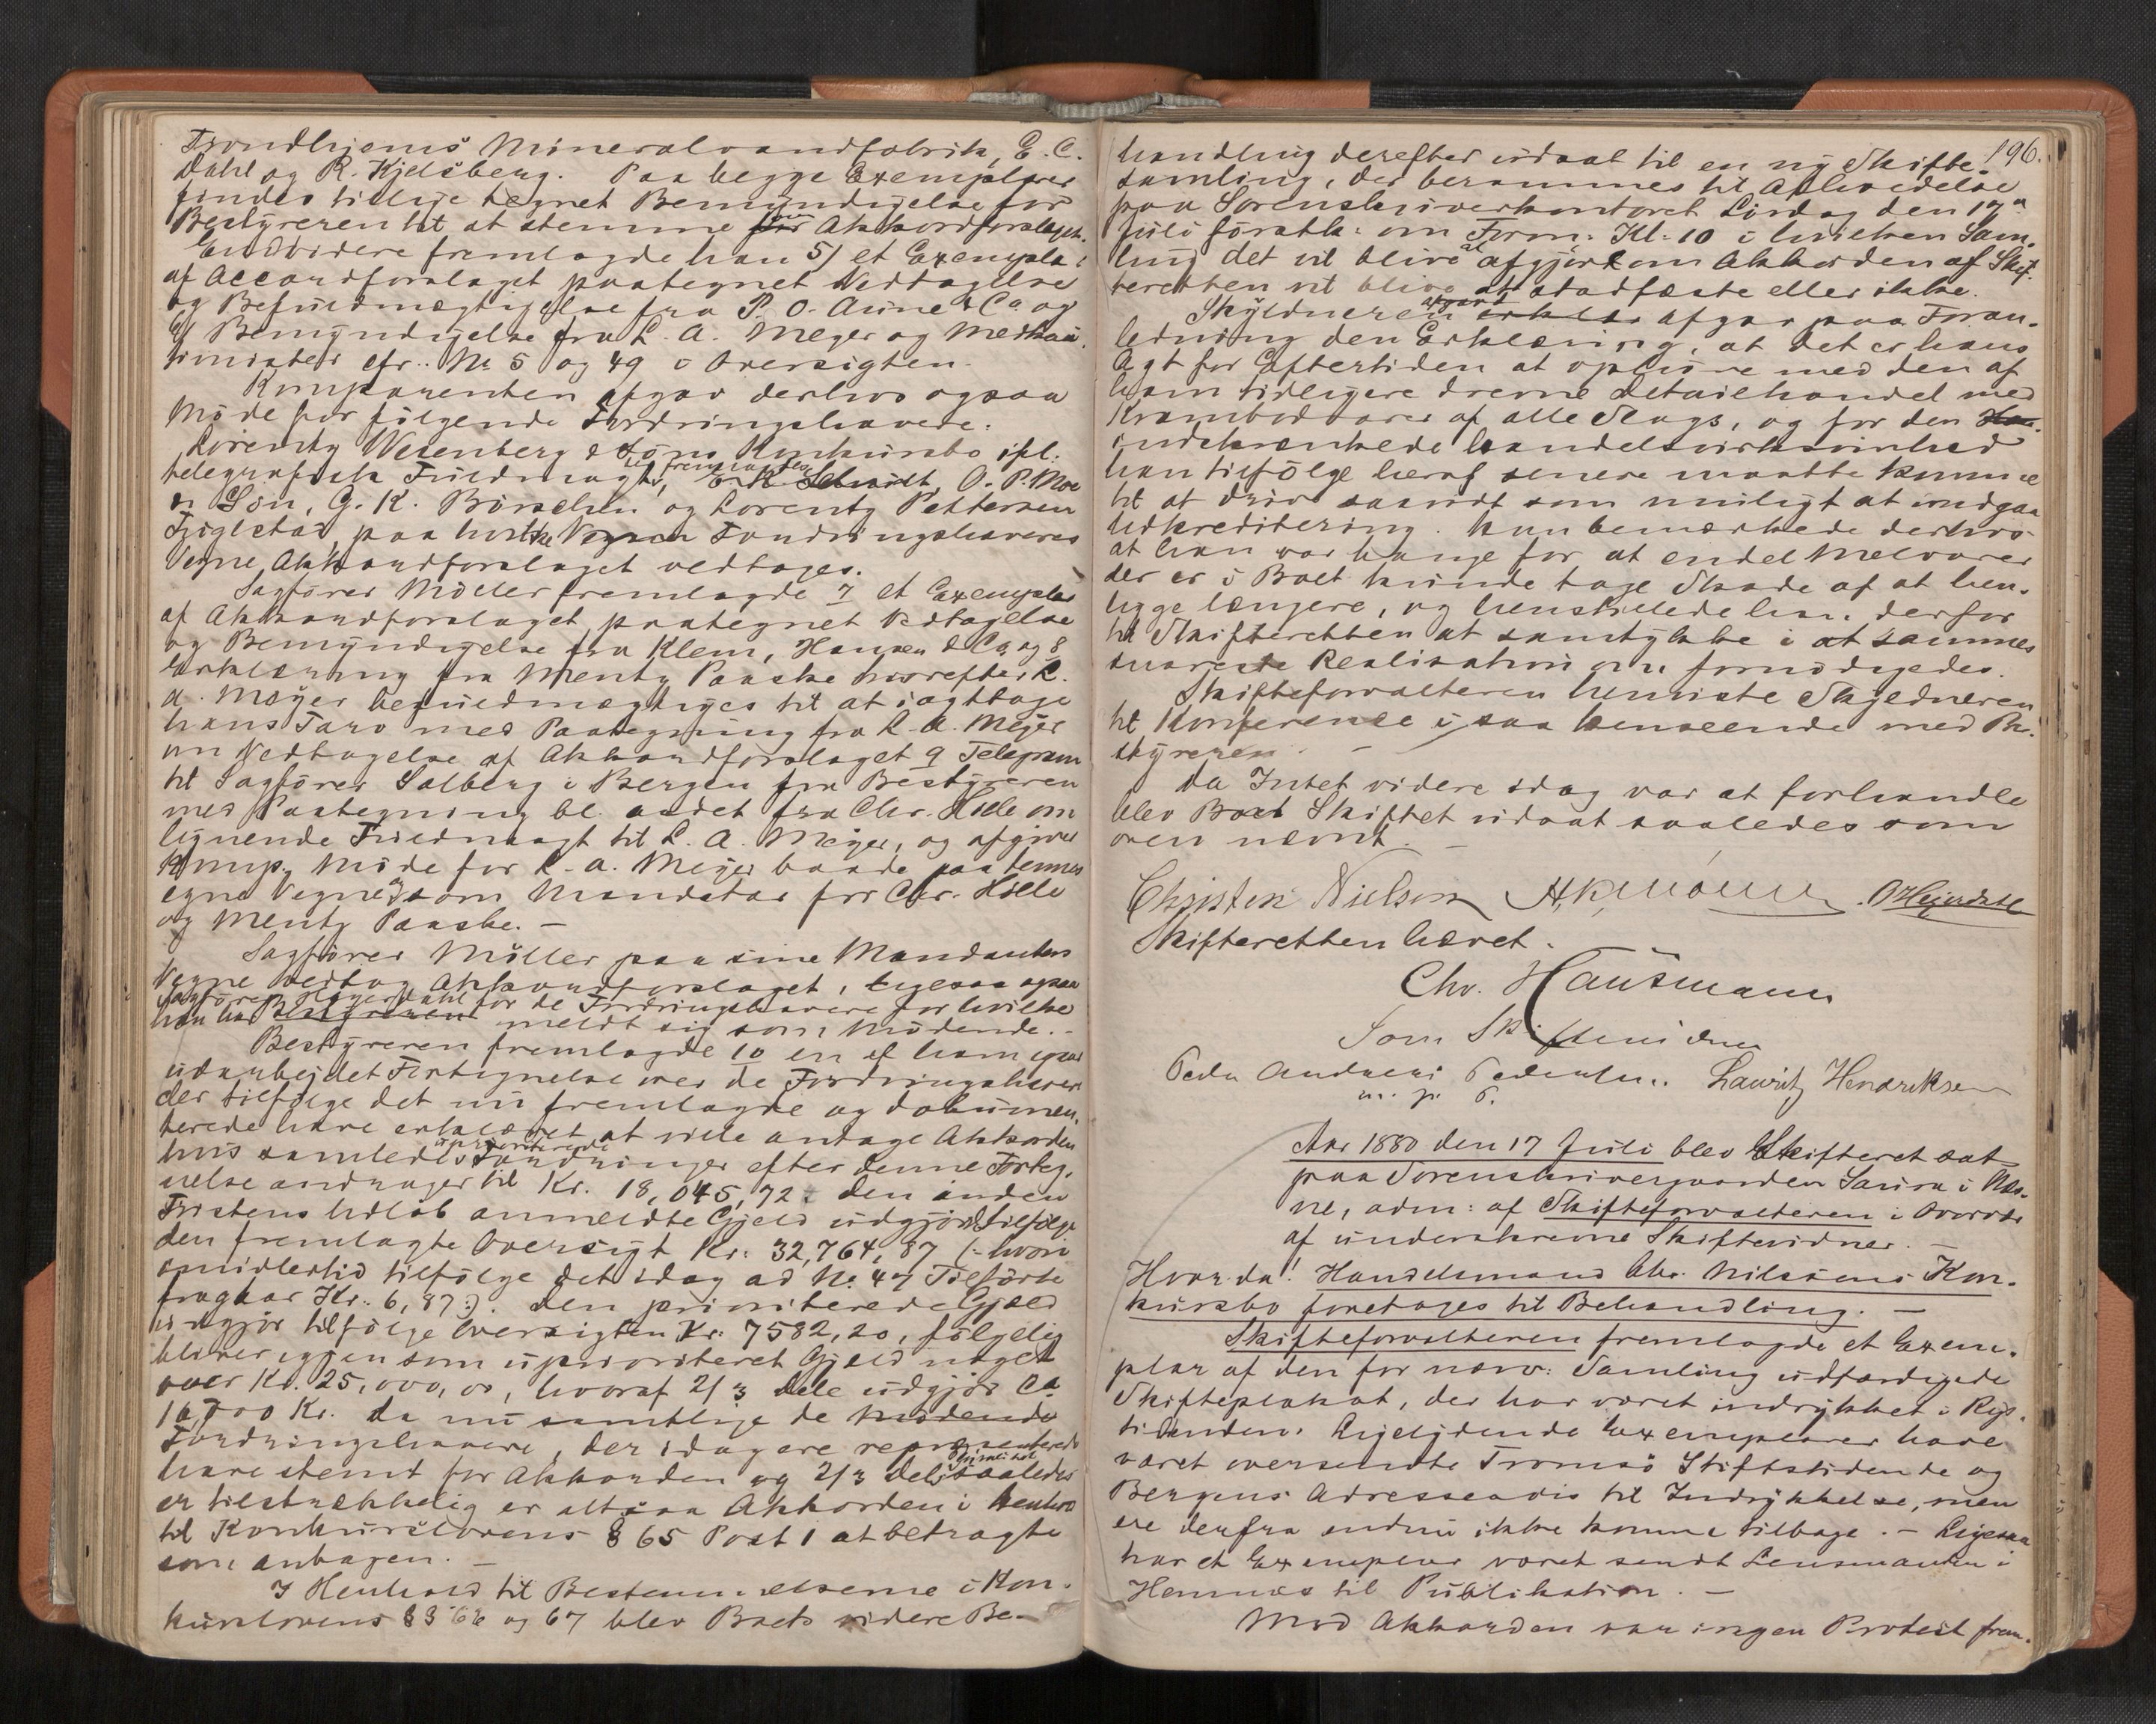 Trondhjems Mineralvandfabrik, E. C.
Dahl og R. Kjelsberg. Paa begge Exemplarer
findes tillige tegnet Bemyndigelse for
Bestyreren til at stemme for Akkordforslaget.
Endvidere fremlagde han 5) et Exemplar
af Accordforslaget paategnet Vedtagelse
og Befuldmægtigelse fra P. O. Aune & Co og
6) Bemyndigelse fra L. A. Meyer og
cfr. No 5 og 49 i Oversigten.
Komparenten afgav derhos ogsaa
Møde for følgende Fordringshavere:
Lorentz Wesenberg & Søns Konkursbo ifl.
telegrafisk Fuldmagt, fremlagdes O. P. Moe
& Søn, G. K. Børschen og Lorentz Pettersen
Fygle, paa hvilke Fordringshaveres
Vegne Akkordforslaget vedtages.
Sagfører Møller fremlagde 7 et Exemplar
af Akkordforslaget paategnet Vedtagelse
og Bemyndigelse fra Klem, Hansen & Co og 8
Erklæring fra Mentz Paaske hvorefter L.
A. Meyer befuldmægtiges til at iagttage
hans Tarv med Paategning fra L. A. Meyer
om Vedtagelse af Akkordforslaget 9 Telegram
til Sagfører Salberg i Bergen fra Bestyreren
med Paategning bl. andet fra Chr. Holle om
lignende Fuldmagt til L. A. Meyer, og afgiver
Komp. Møde for L. A. Meyer baade paa dennes
egne Vegne og som Mandatar for Chr. Holle
og Mentz Paaske. –
Sagfører Møller paa sine Mandanters
Vegne vedtog Akkordforslaget, ligesaa ogsaa
Sagfører Hejerdahl for de Fordringshavere for hvilke
han har Bestyreren meldt sig som mødende. –
Bestyreren fremlagde 10 en af ham
udarbeidet Fortegnelse over de Fordringshavere
der tilfølge det nu fremlagde og dokumen-
terede have erklæret at ville antage Akkorden
hvis samlede uprioriterede Fordringer efter denne Forteg-
nelse andrager til Kr. 18,045,72. den inden
Fristens Udløb anmeldte Gjeld udgjør tilfølge
den fremlagte Oversigt Kr. 32,764,87 (: hvori
imidlertid tilfølge det idag ad No. 47 Tilførte
fragaar Kr. 6,87:). den prioriterede Gjæld
udgjør tilfølge Oversigten Kr. 7582,20, følgelig
bliver igjen som uprioriteret Gjæld noget
over Kr. 25,000,00, hvoraf 2/3 dele udgjør Ca
16,700 Kr. da nu samtlige de mødende
Fordringshavere, der idag ere repræsenterede
have stemt for Akkorden og 2/3 dele saaledes
er tilstrækkelig er altsaa Akkorden i Henhold
til Konkurslovens § 65 Post 1 at betragte
som antagen. –
I Henhold til Bestemmelserne i Kon-
kurslovens §§ 66 og 67 blev Boets videre Be-
196.
handling derefter udsat til en ny Skifte-
samling, der berammes til Afholdelse
paa Sorenskriverkontoret Lørdag den 17de
Juli førstk: om Form: Kl: 10 i hvilken Sam-
ling det vil blive afgjort om Akkorden af Skif-
teretten vil blive at stadfæste eller ikke.
Skyldneren afgav paa Foran-
ledning den Erklæring, at det er hans
Agt for Eftertiden at ophøre med den af
ham tidligere drevne Detailhandel med
Krambodvarer af alle Slags, og for den
indskrænkede Handelsvirksomhed
han tilfølge heraf senere maatte komme
til at drive saavidt som muligt at undgaa
Udkreditering. Han bemærkede derhos
at han var bange for at endel Melvarer
der er i Boet kunde tage Skade af at hen-
ligge længere, og henstillede han derfor
til Skifteretten at samtykke i at sammes
snareste Realisation om fornødiges.
Skifteforvalteren henviste Skyldneren
til Konference i saa Henseende med Be-
styreren. –
Da Intet videre idag var at forhandle
blev Boet Skiftet udsat saaledes som
oven nævnt. –
Christen Nielsen O Hejerdahl
Skifteretten hævet.
Chr. Hausmann
Som Skiftevidner
Peder Andreas Pedersen. Lauritz Hendriksen
m. p. P.
Aar 1880 den 17 Juli blev Skifteret sat
paa Sorenskrivergaarden Saura i Næs-
ne, adm: af Skifteforvalteren i Overvær
af underskrevne Skiftevidner. –
Hvor da! Handelsmand Chr. Nilsens Kon-
kursbo foretages til Behandling. –
Skifteforvalteren fremlagde et Exem-
plar af den for nærv: Samling udfærdigede
Skifteplakat, der har været indrykket i Rigs-
tidenden. Ligelydende Exemplarer have
været oversendte Tromsø Stiftstidende og
Bergens Adresseavis til Indrykkelse, men
ere derfra endnu ikke komne tilbage. – Ligesaa
har et Exemplar været sendt Lensmanden i
Hemnæs til Publikation. –
Mod Akkorden var ingen Protest frem-